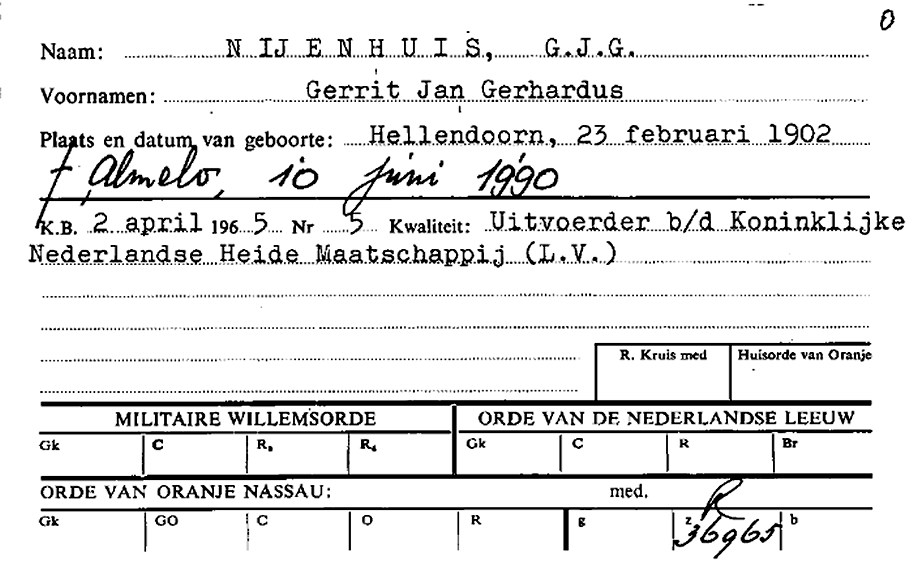 O
Naam: NIJENHUIS, G.J.G.
Voornamen: Gerrit Jan Gerhardus
Plaats en datum van geboorte: Hellendoorn, 23 februari 1902
† Almelo, 10 juni 1990
K.B. 2 april 1965 Nr 5 Kwaliteit: Uitvoerder b/d Koninklijke
Nederlandse Heide Maatschappij (L.V.)
R. Kruis med Huisorde van Oranje
MILITAIRE WILLEMSORDE ORDE VAN DE NEDERLANDSE LEEUW
Gk C R₃ R₄ Gk C R Br
ORDE VAN ORANJE NASSAU: med. R
Gk GO C O R g z b
36965